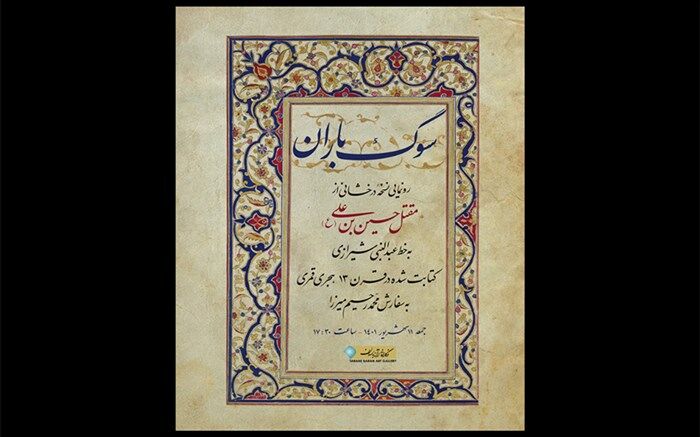 سوگ باران
رونمایی نسخهٔ درخشانی از
مقتل حسین بن علی (ع)
به خط عبدالنبی شیرازی
کتابت شده در قرن ۱۳ هجری قمری
به سفارش محمد رحیم میرزا
جمعه ۱۱ شهریور ۱۴۰۱ - ساعت ۱۷:۳۰
TARANE BARAN ART GALLERY